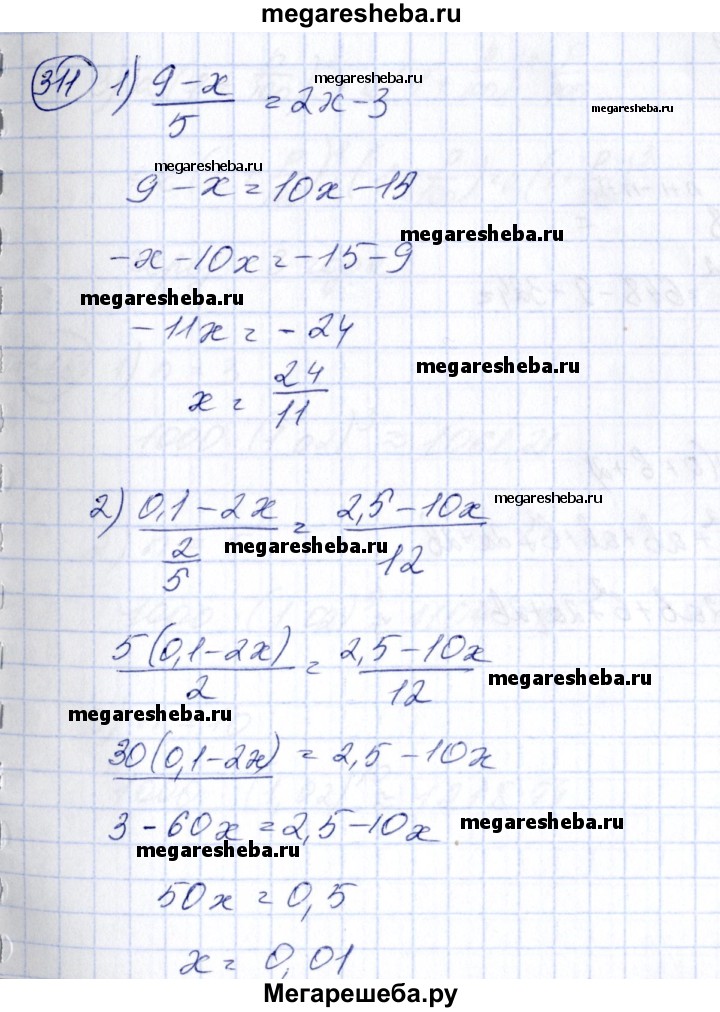 megaresheba.ru
311 1) (9-x)/5 = 2x-3
megaresheba.ru
megaresheba.ru
megaresheba.ru
9-x=10x-15
megaresheba.ru
-x-10x=-15-9
megaresheba.ru
-11x=-24
megaresheba.ru
x=24/11
2) (0,1-2x)/(2/5) = (2,5-10x)/12
megaresheba.ru
megaresheba.ru
5(0,1-2x)/2 = (2,5-10x)/12
megaresheba.ru
megaresheba.ru
30(0,1-2x)=2,5-10x
3-60x=2,5-10x
megaresheba.ru
megaresheba.ru
50x=0,5
x=0,01
Мегарешеба.ру